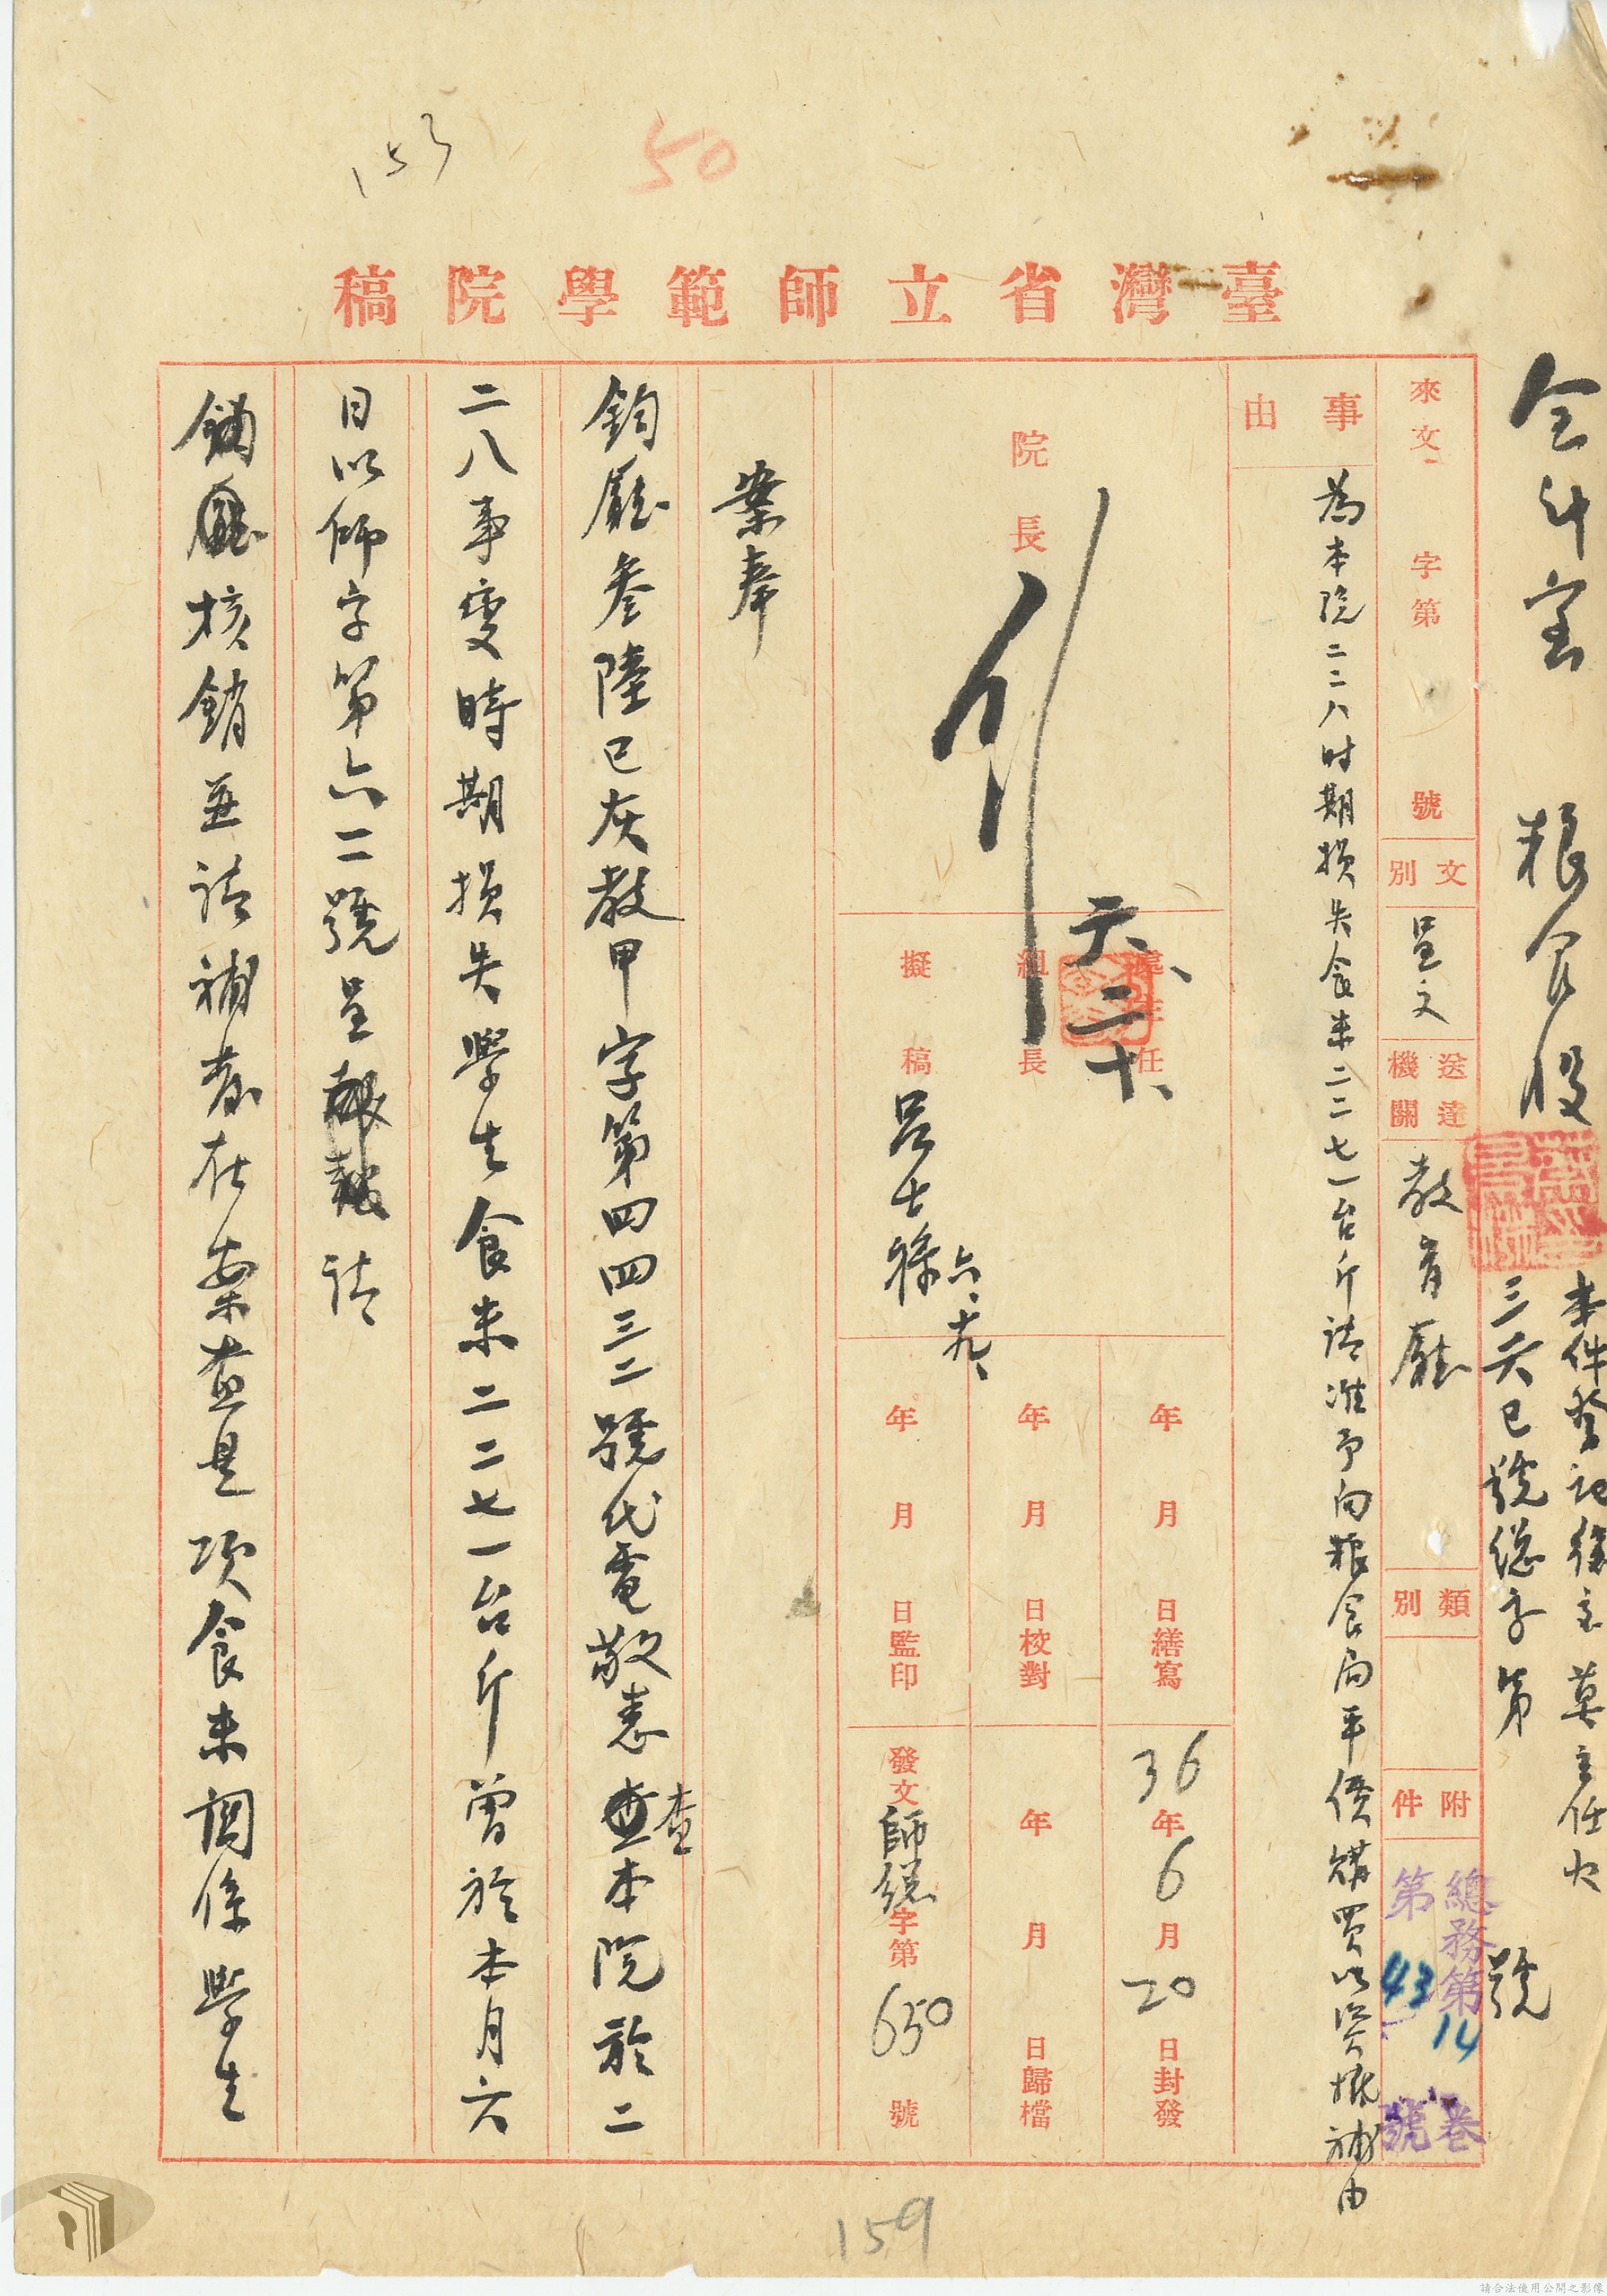 153
50
臺灣省立師範學院稿
會計室 粮食股
本件登記後交莫主任
三六巳號總字第 號
來文 字第 號
文別 呈文
送達機關 教育廳
類別
附件
總務第14卷
第43號
事由 為本院二二八时期損失食米二二七一台斤請准予向粮食局平價購買以資抵補由
院長 行 六、二十、
處主任
組長
擬稿 呂士祥 六、十九、
年 月 日繕寫
年 月 日校對
年 月 日監印
36年6月20日封發
年 月 日歸檔
發文師總字第650號
案奉
鈞廳叁陸巳灰教甲字第四四三二號代電敬悉查本院於二
二八事變時期損失學生食米二二七一台斤曾於本月六
日以師字第六一二號呈報請
鈞廳核銷並請補發在案查是項食米關係學生
159
請合法使用公開之影像